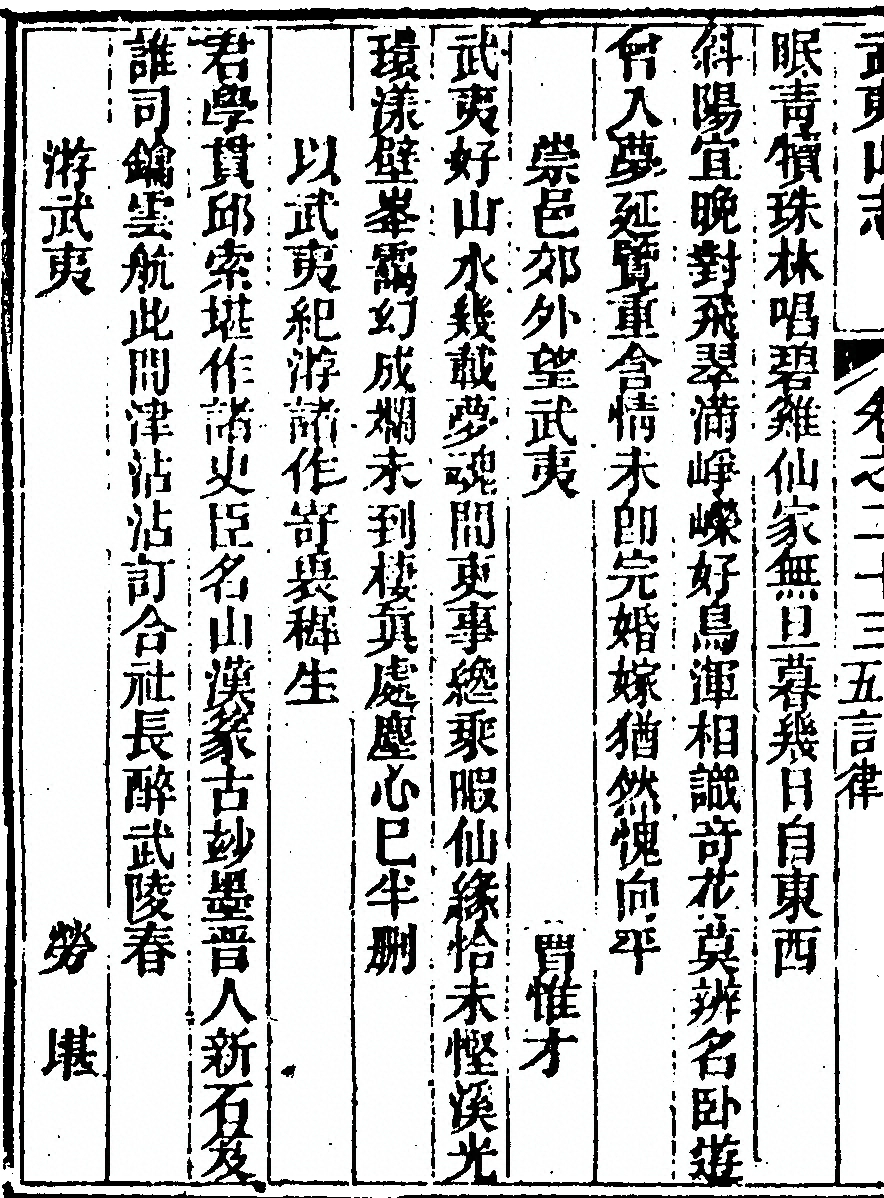 武夷山志 卷之二十三五言律
眠青犢珠林唱碧雞仙家無旦暮幾日自東西
斜陽宜晚對飛翠滿崢嶸好鳥渾相識奇花莫辨名卧遊
曾入夢延覽重含情未卽完婚嫁猶然愧向平
崇邑郊外望武夷 賈惟才
武夷好山水幾載夢魂間吏事纔乘暇仙緣恰未慳溪光
環漾壁峯靄幻成斕未到棲眞處塵心巳半刪
以武夷紀游諸作寄裴穉生
君學貫邱索堪作諸史臣名山漢篆古玅墨晋人新石笈
誰司鑰雲航此問津沾沾訂合社長醉武陵春
游武夷 勞堪